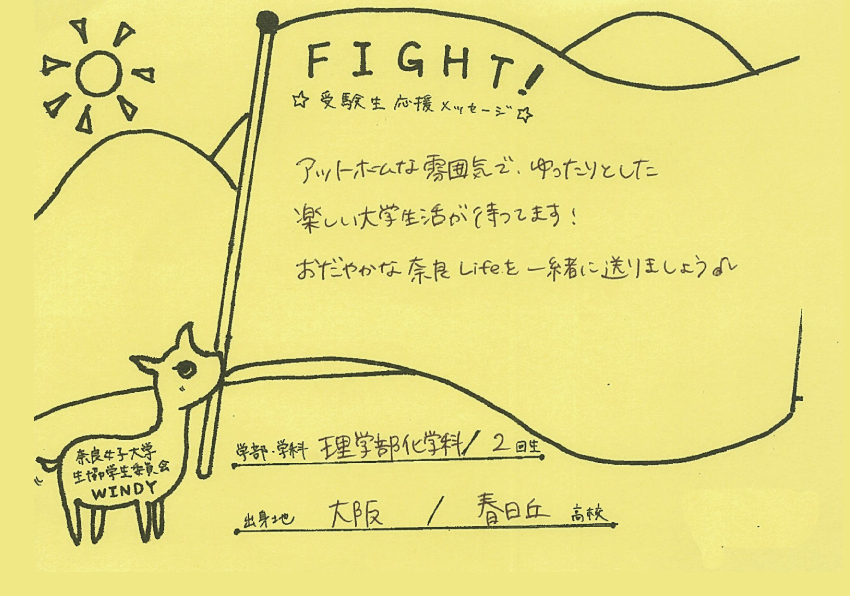 FIGHT!
☆ 受験生 応援 メッセージ☆
アットホームな雰囲気で、ゆったりとした
楽しい大学生活が待ってます！
おだやかな奈良Lifeを一緒に送りましょう♪
奈良女子大学
生協学生委員会
WINDY
学部・学科 理学部化学科/2回生
出身地 大阪 / 春日丘 高校